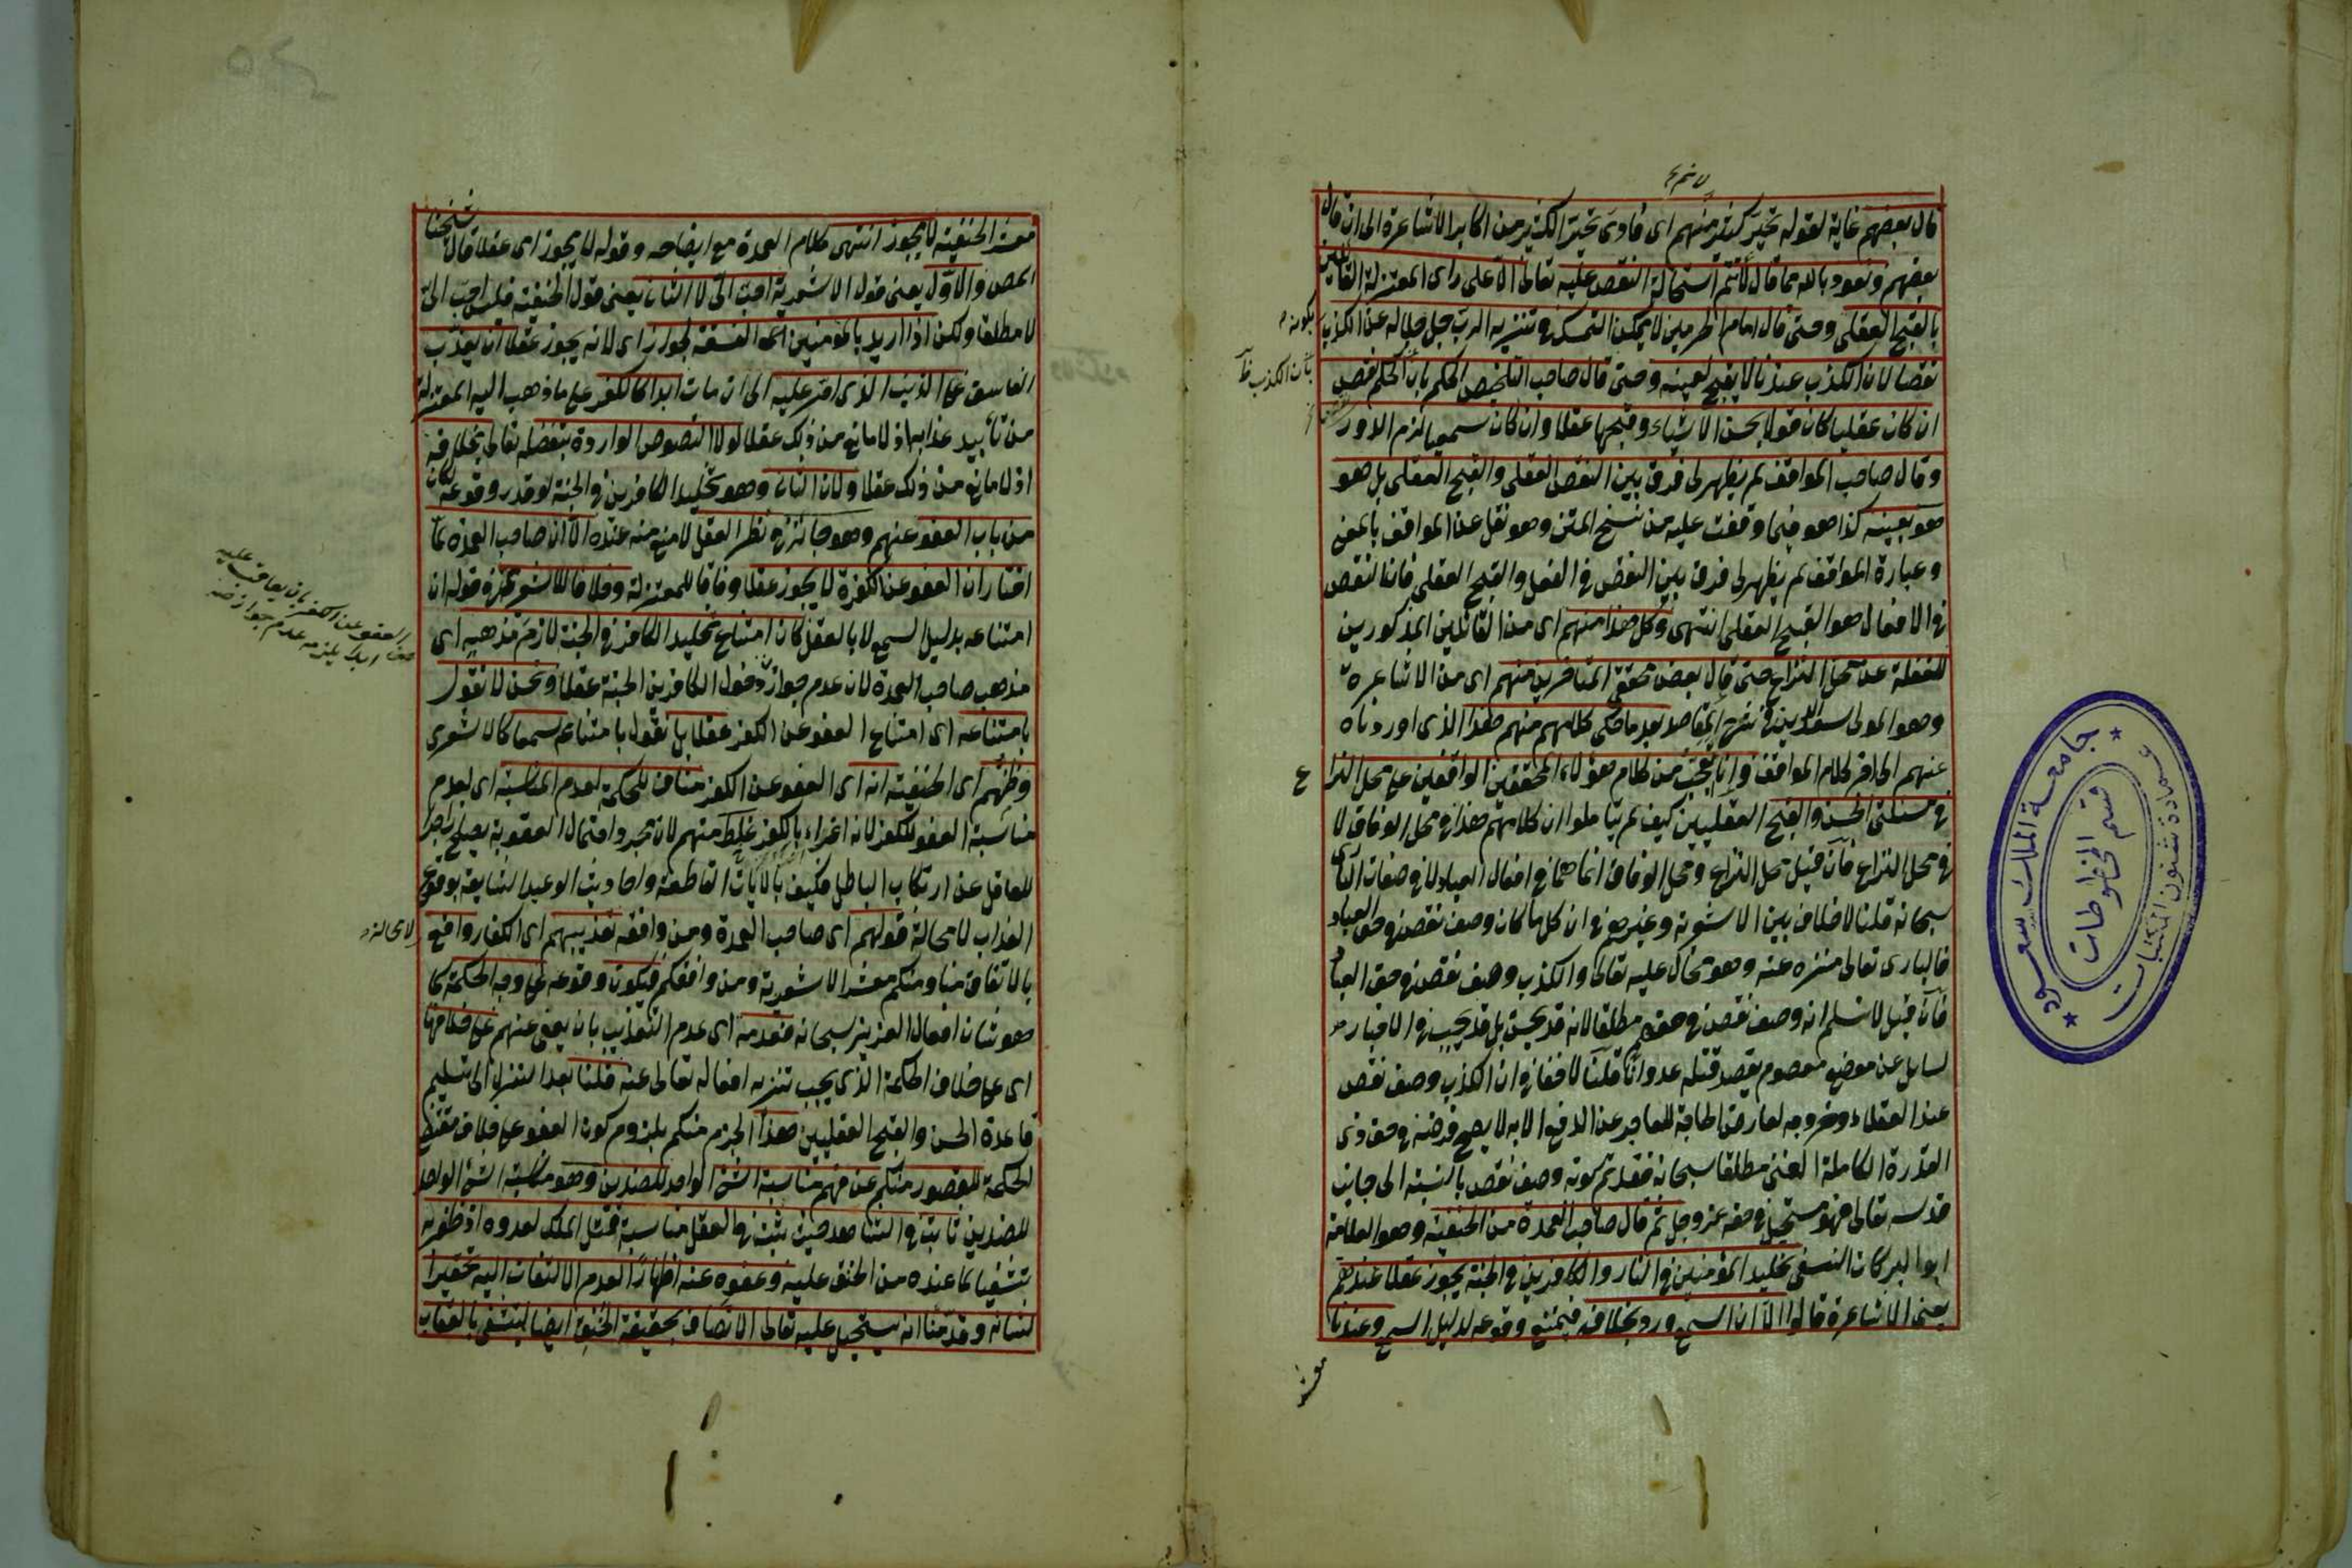 قال بعضهم غاية لقوله تحير كثير منهم اى فادى تحير الكثير من اكابر الاشاعرة الى ان قال
بعضهم ونعوذ بالله مما قال لا تتم استحالة النقص عليه تعالى الا على راى المعتزلة القائلين
بالقبح العقلى وحتى قال امام الحرمين لا يمكن التمسك فى تنزيه الرب جل جلاله عن الكذب بكونه
نقصا لان الكذب عندنا لا يقبح لعينه وحتى قال صاحب التلخيص الحكم بان الكذب نقص
ان كان عقليا كان قولا بحسن الاشياء وقبحها عقلا وان كان سمعيا لزم الدور
وقال صاحب المواقف لم يظهر لى فرق بين النقص العقلى والقبح العقلى بل هو
هو بعينه كذا هو فيما وقفت عليه من نسخ المتن وهو نقل عن المواقف بالمعنى
وعبارة المواقف لم يظهر لى فرق بين النقص فى الفعل والقبح العقلى فان النقص
فى الافعال هو القبح العقلى انتهى وكل هذا منهم اى من القائلين المذكورين
للغفلة عن محل النزاع حتى قال بعض محققى المتاخرين منهم اى من الاشاعرة
وهو المولى سعد الدين فى شرح المقاصد بعد ما حكى كلامهم منهم هذا الذى اوردناه
عنهم الى اخر كلام المواقف وانا اتعجب من كلام هؤلاء المحققين الواقفين على محل النزاع
فى مسئلتى الحسن والقبح العقليين كيف لم يتاملوا ان كلامهم هذا فى محل الوفاق لا
فى محل النزاع فان قيل محل النزاع ومحل الوفاق انما هما فى افعال العباد لا فى صفات البارى
سبحانه قلنا لا خلاف بين الاشعرية وغيرهم فى ان كلما كان وصف نقص فى حق العباد
فالبارى تعالى منزه عنه وهو محال عليه تعالى والكذب وصف نقص فى حق العباد
فان قيل لا نسلم انه وصف نقص فى حقهم مطلقا لانه قد يحسن بل قد يجب فى الاخبار
لسايل عن موضع معصوم يقصد قتله عدوانا قلنا لا خفاء فى ان الكذب وصف نقص
عند العقلاء وخروجه لعارض الحاجة للعاجز عن الدفع الا به لا يصح فرضه فى حق ذى
القدرة الكاملة الغنى مطلقا سبحانه فقد تم كونه وصف نقص بالنسبة الى جانب
قدسه تعالى فهو مستحيل فى حقه عز وجل ثم قال صاحب العمدة من الحنفية وهو العلامة
ابو البركات النسفى تخليد المؤمنين فى النار والكافرين فى الجنة يجوز عقلا عندهم
يعنى الاشاعرة قالوا الا ان السمع ورد بخلافه فيمتنع وقوعه لدليل السمع وعندنا
معشر
جامعة الملك سعود
عمادة شئون المكتبات
قسم المخطوطات
معشر الحنفية لا يجوز انتهى كلام العمدة مع ايضاحه وقوله لا يجوز اى عقلا قال شيخنا
المص والاول يعنى قول الاشعرية احب الى لا الثانى يعنى قول الحنفية فليس احب الى
لا مطلقا ولكن اذا اريد بالمؤمنين الفسقة لجواز اى لانه يجوز عقلا ان يعذب
الفاسق على الذنب الذى اصر عليه الى ان مات ابدا كالكفر على ما ذهب اليه المعتزلة
من تأبيد عذابه اذ لا مانع من ذلك عقلا لولا النصوص الواردة بتفضله تعالى بخلافه
اذ لا مانع من ذلك عقلا ولان الثانى وهو تخليد الكافرين فى الجنة لو قدر وقوعه كان
من باب العفو عنهم وهو جائز فى نظر العقل لا منع منه عنده الا ان صاحب العمدة لما
اختار ان العفو عن الكفر لا يجوز عقلا وفاقا للمعتزلة وخلافا للاشعرية فى قوله ان
امتناعه بدليل السمع لا بالعقل كان امتناع تخليد الكافر فى الجنة لازم مذهبه اى
مذهب صاحب العمدة لان عدم جواز دخول الكافرين الجنة عقلا ونحن لا نقول
بامتناعه اى امتناع العفو عن الكفر عقلا بل نقول بامتناعه سمعا كالاشعرى
وظنهم اى الحنفية انه اى العفو عن الكفر مناف للحكمة لعدم المناسبة اى لعدم
مناسبة العفو للكفر لانه اغراء بالكفر غلط منهم لان مجرد احتمال العقوبة يصلح زاجرا
للعاقل عن ارتكاب الباطل فكيف بالايات القاطعة واحاديث الوعيد الشايعة بوقوع
العذاب لا محالة قولهم اى صاحب العمدة ومن وافقه تعذيبهم اى الكفار واقع لا محالة
بالاتفاق منا ومنكم معشر الاشعرية ومن وافقكم فيكون وقوعه على وجه الحكمة كما
هو شان افعال العزيز سبحانه فعدمه اى عدم التعذيب بان يعفى عنهم على خلافها
اى على خلاف الحكمة الذى يجب تنزيه افعاله تعالى عنه قلنا بعد التنزل الى تسليم
قاعدة الحسن والقبح العقليين هذا الجزم منكم بلزوم كون العفو على خلاف مقتضى
الحكمة للقصور منكم عن فهم مناسبة الشئ الواحد للضدين وهو مناسبة الشئ الواحد
للضدين ثابت فى الشاهد حيث ثبت فى العقل مناسبة قتل الملك لعدوه اذا ظفر به
تشفيا لما عنده من الحنق عليه وعفوه عنه اظهارا لعدم الالتفات اليه تحقيرا
لشانه وقد منا انه يستحيل عليه تعالى الاتصاف بحقيقة الحنق ايضا ليتشفى بالعقاب